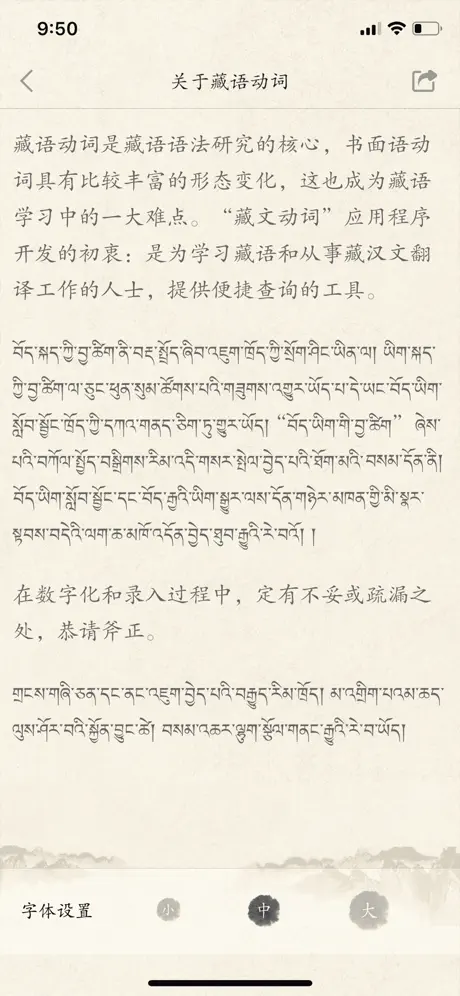 9:50
关于藏语动词
藏语动词是藏语语法研究的核心，书面语动
词具有比较丰富的形态变化，这也成为藏语
学习中的一大难点。“藏文动词”应用程序
开发的初衷：是为学习藏语和从事藏汉文翻
译工作的人士，提供便捷查询的工具。
བོད་སྐད་ཀྱི་བྱ་ཚིག་ནི་བརྡ་སྤྲོད་ཞིབ་འཇུག་ཁྲོད་ཀྱི་སྲོག་ཤིང་ཡིན་ལ། ཡིག་སྐད་
ཀྱི་བྱ་ཚིག་ལ་ཅུང་ཕུན་སུམ་ཚོགས་པའི་གཟུགས་འགྱུར་ཡོད་པ་དེ་ཡང་བོད་ཡིག་
སློབ་སྦྱོང་ཁྲོད་ཀྱི་དཀའ་གནད་ཅིག་ཏུ་གྱུར་ཡོད། “བོད་ཡིག་གི་བྱ་ཚིག” ཞེས་
པའི་བཀོལ་སྤྱོད་བསྒྲིགས་རིམ་འདི་གསར་སྤེལ་བྱེད་པའི་ཐོག་མའི་བསམ་དོན་ནི།
བོད་ཡིག་སློབ་སྦྱོང་དང་བོད་རྒྱའི་ཡིག་སྒྱུར་ལས་དོན་གཉེར་མཁན་གྱི་མི་སྣར་
སྟབས་བདེའི་ལག་ཆ་མཁོ་འདོན་བྱེད་ཐུབ་རྒྱུའི་རེ་བའོ། །
在数字化和录入过程中，定有不妥或疏漏之
处，恭请斧正。
གྲངས་གཞི་ཅན་དང་ནང་འཇུག་བྱེད་པའི་བརྒྱུད་རིམ་ཁྲོད། མ་འགྲིག་པའམ་ཆད་
ལུས་ཤོར་བའི་སྐྱོན་བྱུང་ཚེ། བསམ་འཆར་ལྷུག་སྩོལ་གནང་རྒྱུའི་རེ་བ་ཡོད།
字体设置 小 中 大